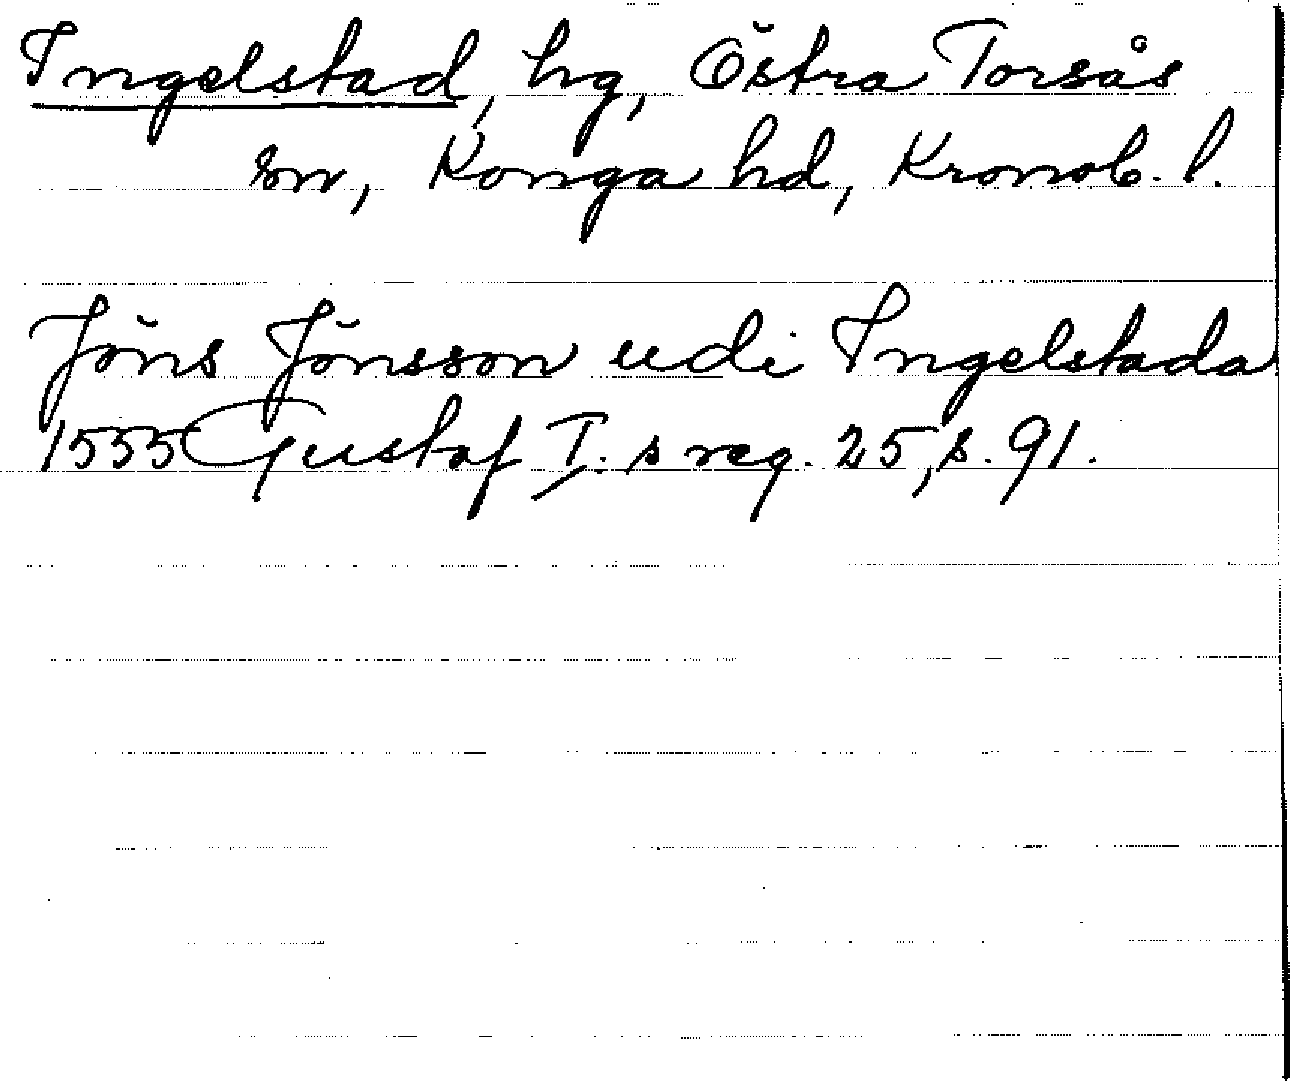 Ingelstad, hg, Östra Torsås
sn, Konga hd, Kronob. l.
Jöns Jönsson udi Ingelstada
1555 Gustaf I:s reg. 25, s. 91.